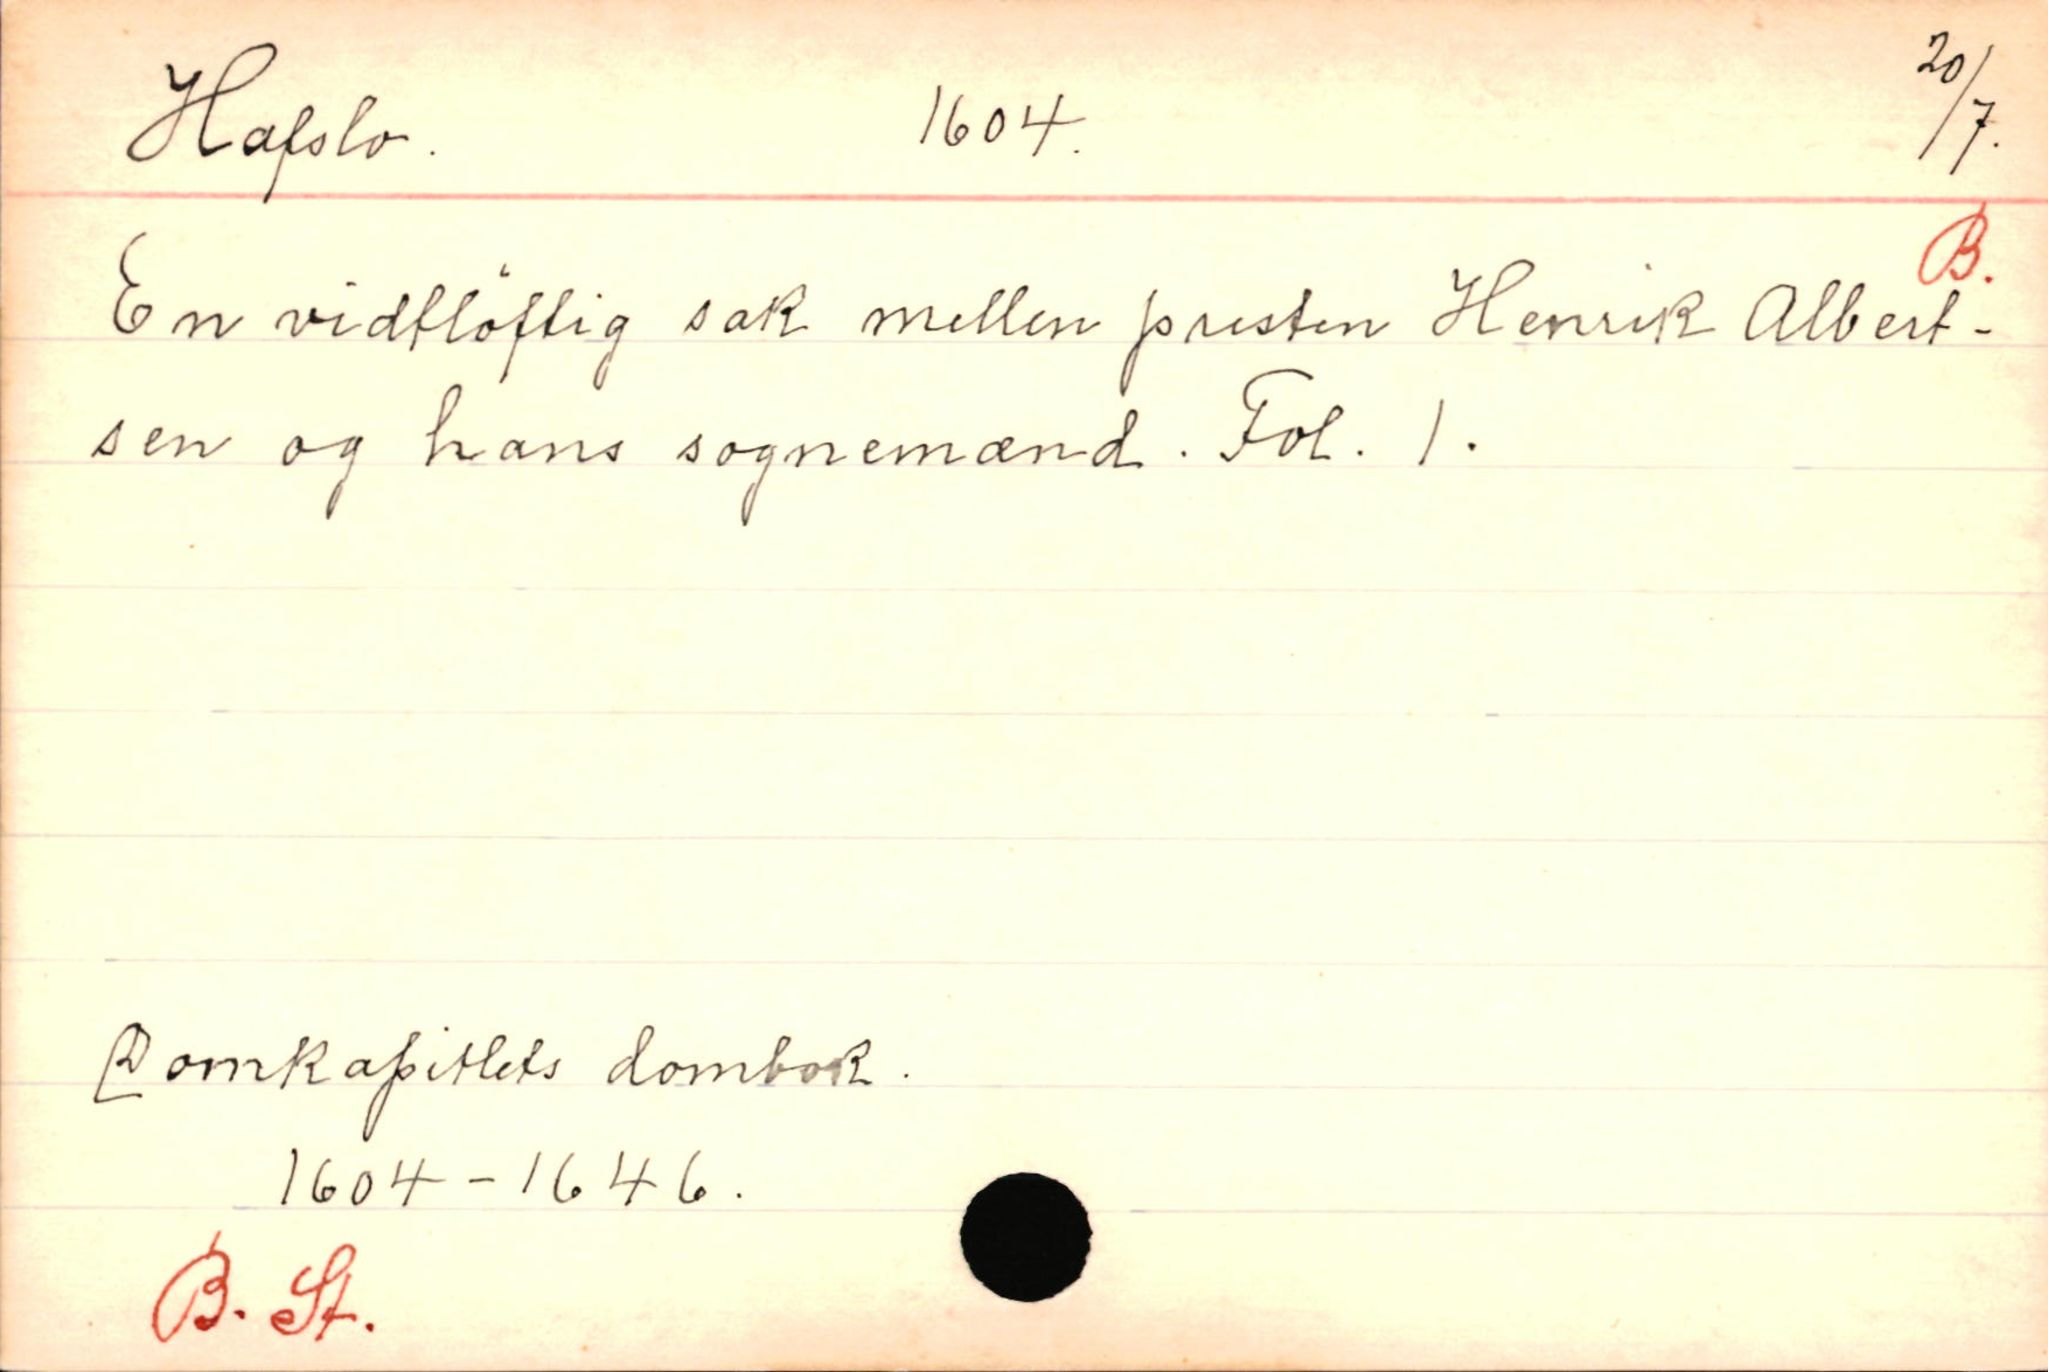 Hafslo. 1604. 20/7.
B.
En vidtlöftig sak mellen presten Henrik Albert-
sen og hans sognemænd. Fol. 1.
Domkapitlets dombok.
1604-1646.
B. St.